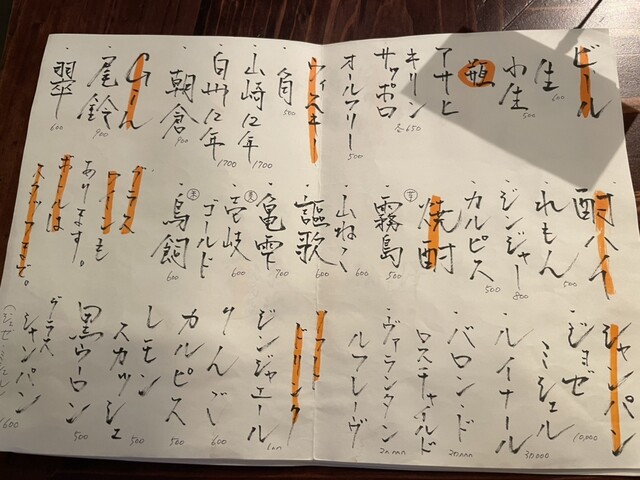 ビール
・生
600
・小生
500
瓶
・アサヒ
・キリン
・サッポロ
各650
・オールフリー
500
ウィスキー
・角
500
・山崎12年
1700
・白州12年
1700
・朝倉
900
Gin
・尾鈴
900
・翠
600
酎ハイ
・れもん
500
・ジンジャー
800
・カルピス
500
焼酎
芋
・霧島
500
・山ねこ
600
・謳歌
600
・亀雫
700
麦
・壱岐
600
ゴールド
米
・鳥飼
600
グラス
ワインも
あります。
ボトルは
スタッフまで。
シャンパン
・ジョゼ
ミシェル
10,000
・ルイナール
30000
・バロン・ド
ロスチャイルド
20000
・ヴァランタン
ルフレーヴ
20000
ソフト
ドリンク
・ジンジャエール
・りんご
600
・カルピス
500
・レモン
スカッシュ
500
・黒ウーロン
500
・グラス
シャンパン
(ジョゼミシェル)
1600